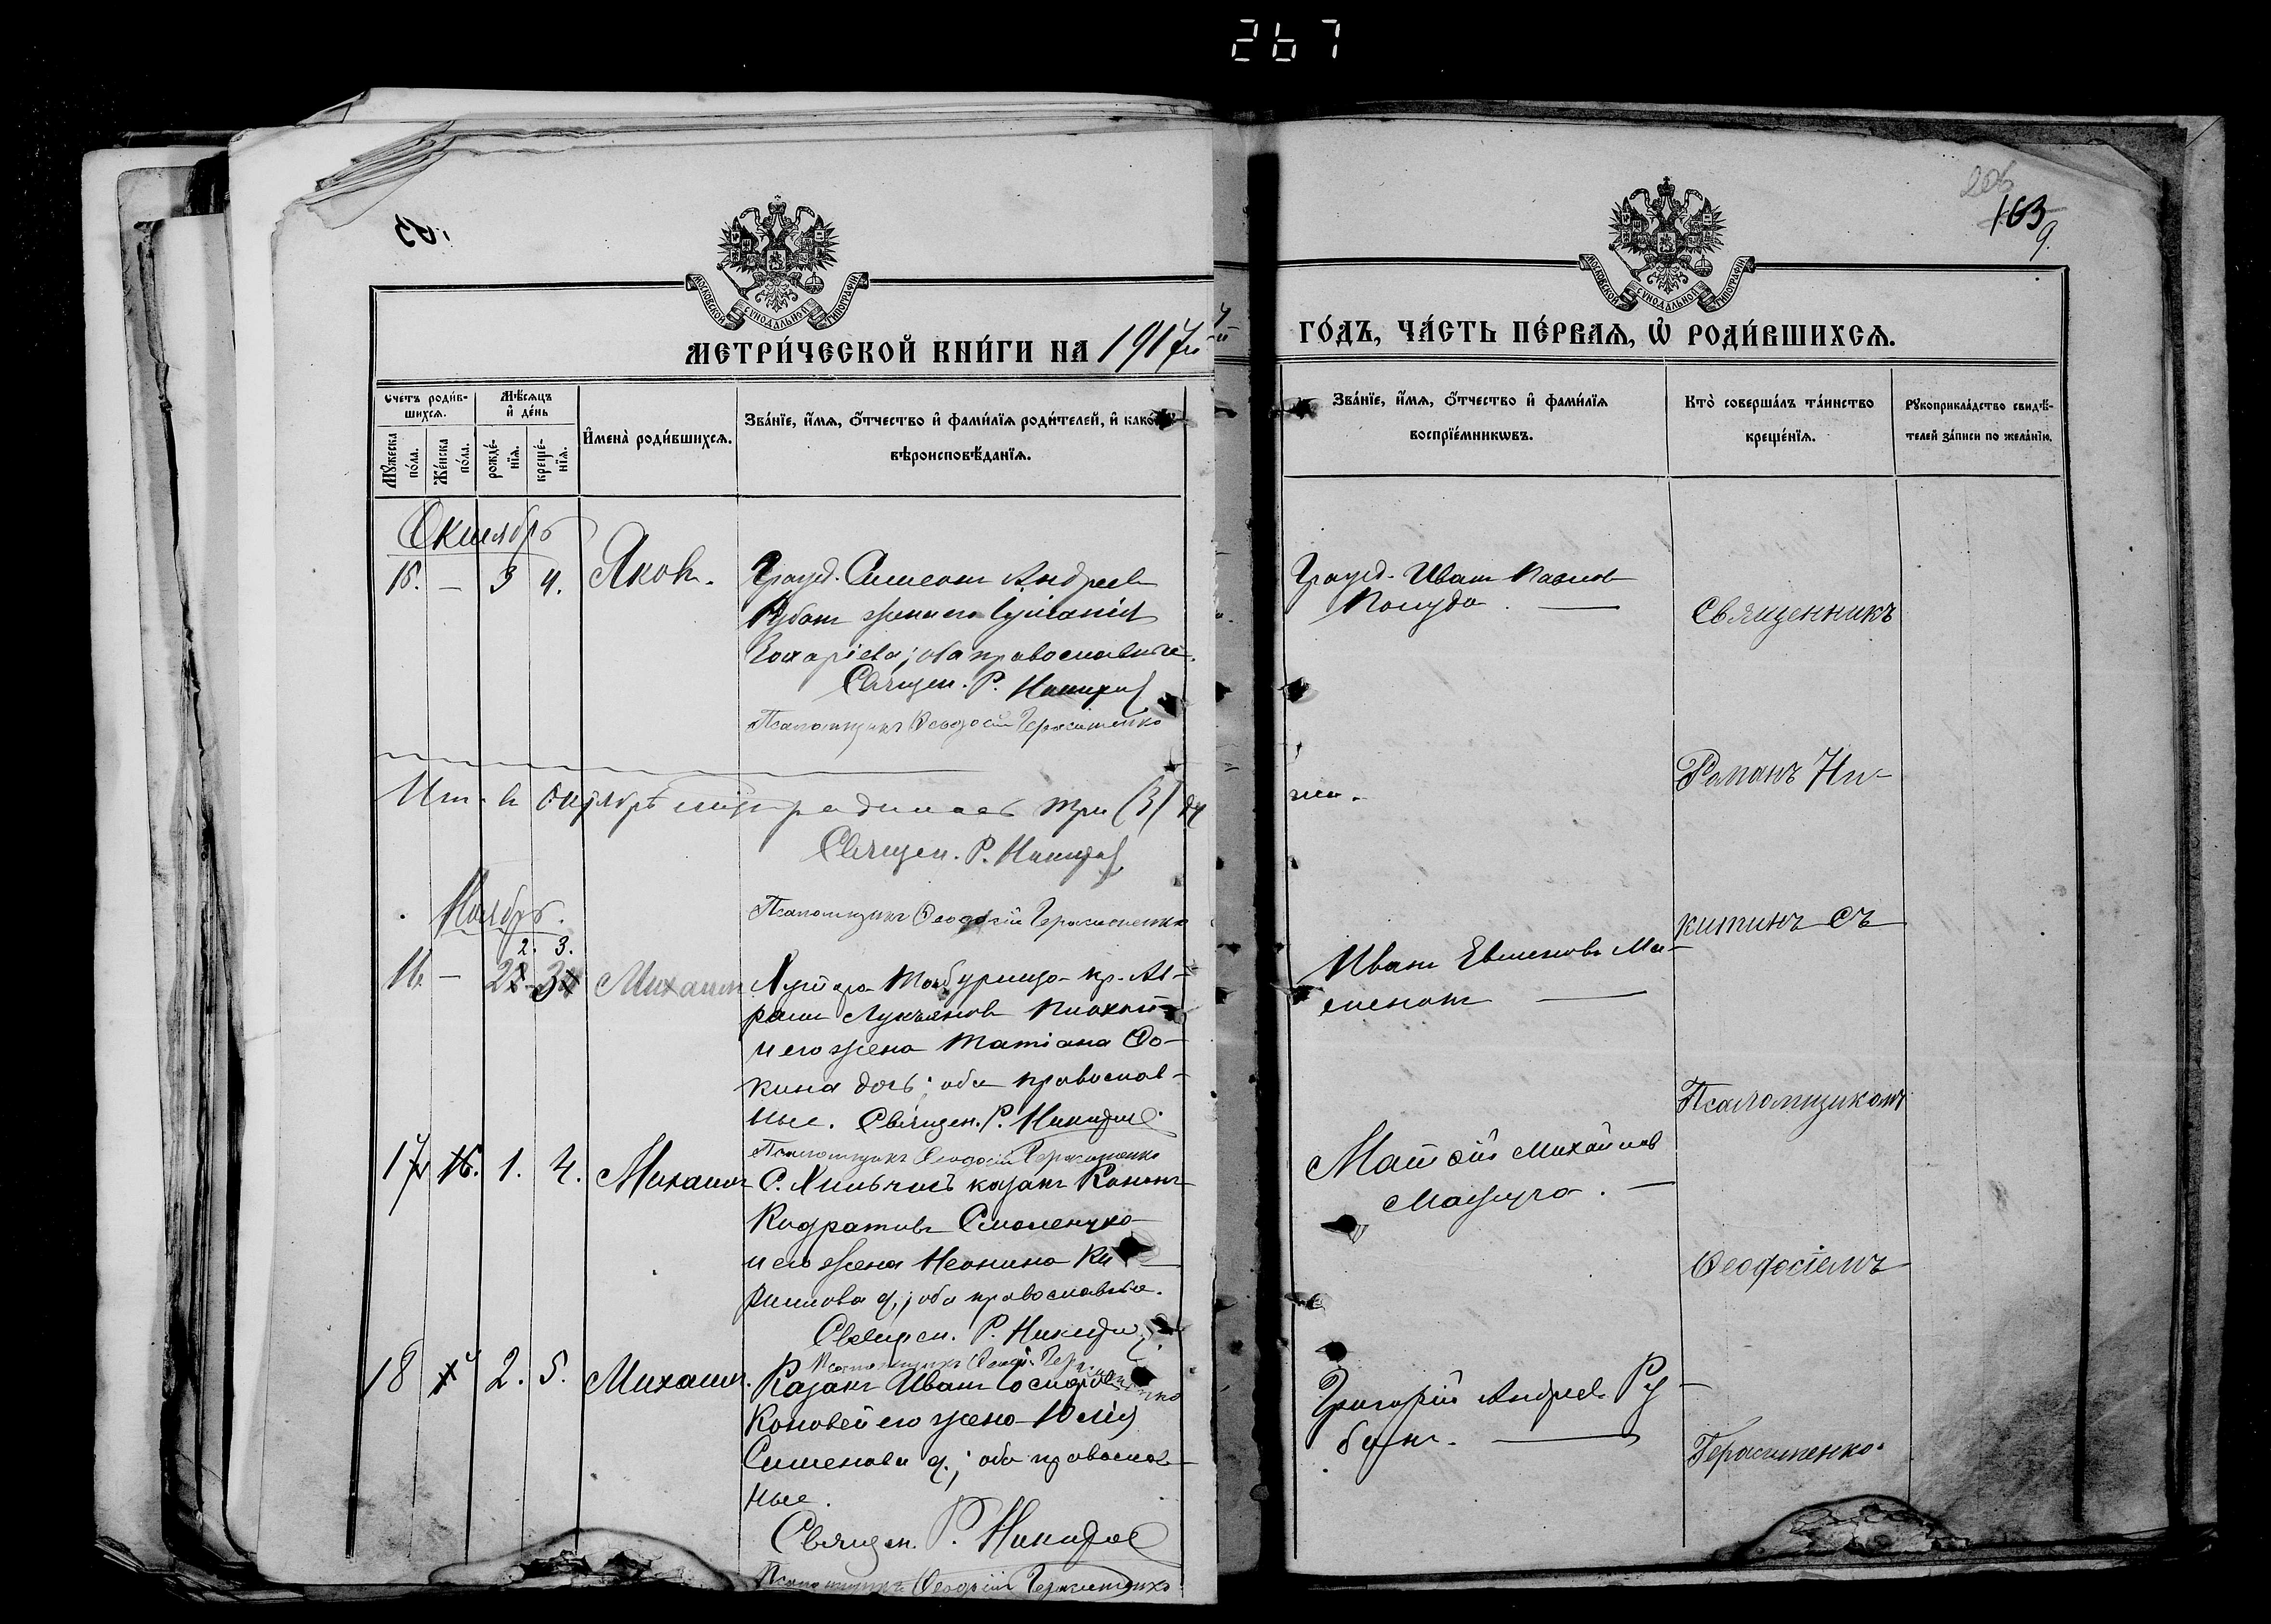 267
206
163
9.
МОСКОВСКОЙ СѴНОДАЛЬНОЙ ТИПОГРАФІИ
МОСКОВСКОЙ СѴНОДАЛЬНОЙ ТИПОГРАФІИ
МЕТРИ́ЧЕСКОЙ КНИ́ГИ НА 1917й
ГО́ДЪ, ЧА́СТЬ ПЕ́РВАЯ, Ѡ҆ РОДИ́ВШИХСЯ.
Счетъ роди́в-
шихся.
Мѣ́сяцъ
и҆ де́нь
Мꙋ́жеска
по́ла.
Же́нска
по́ла.
рожде́-
нїя.
креще́-
нїя.
И҆мена̀ роди́вшихся.
Зва́нїе, и҆́мя, ѻ҆́тчество и҆ фами́лїя роди́телей, и҆ како́гѡ
вѣроисповѣ́данїя.
Зва́нїе, и҆́мя, ѻ҆́тчество и҆ фами́лїя
воспрїе́мникѡвъ.
Кто̀ соверша́лъ та́инство
креще́нїя.
Рꙋкоприкла́дство свидѣ́-
телей за́писи по жела́нїю.
Октябрь
15. — 3 4. Яковъ.
Гражд. Симеонъ Андреев
Рубанъ жена его
Захаріева; оба православные.
Священ. Р. Никитин
Псаломщикъ Ѳеодосій Герасименко
Гражд. Иванъ Павлов
Священникъ
Романъ Ни-
китинъ съ
Псаломщикомъ
Ѳеодосіемъ
Герасименко.
Октябрѣ три (3)
Священ. Р. Никитин
Псаломщикъ Ѳеодосій Герасименко
Ноябрь.
2. 3.
16. — Михаилъ
Хутора
Лукьяновъ
и его жена Татіана Ѳо-
кина дочь; оба православ-
ные. Священ. Р. Никитин
Псаломщикъ Ѳеодосій Герасименко
Иванъ Евменовъ
17 16. 1. 4. Михаилъ
С. козакъ Кононъ
Кодратовъ Смоленко
и его жена Неонила Ки-
рилова д.; оба православные.
Священ. Р. Никитин
Псаломщикъ Ѳеод. Герасименко
Матѳій Михайлов
18 2. 5. Михаилъ.
Казакъ Иванъ
Коновей его жена Юлія
Сименова д.; оба православ-
ные.
Священ. Р. Никитин
Псаломщикъ Ѳеодосій Герасименко
Григорій Андреев Ру-
банъ.